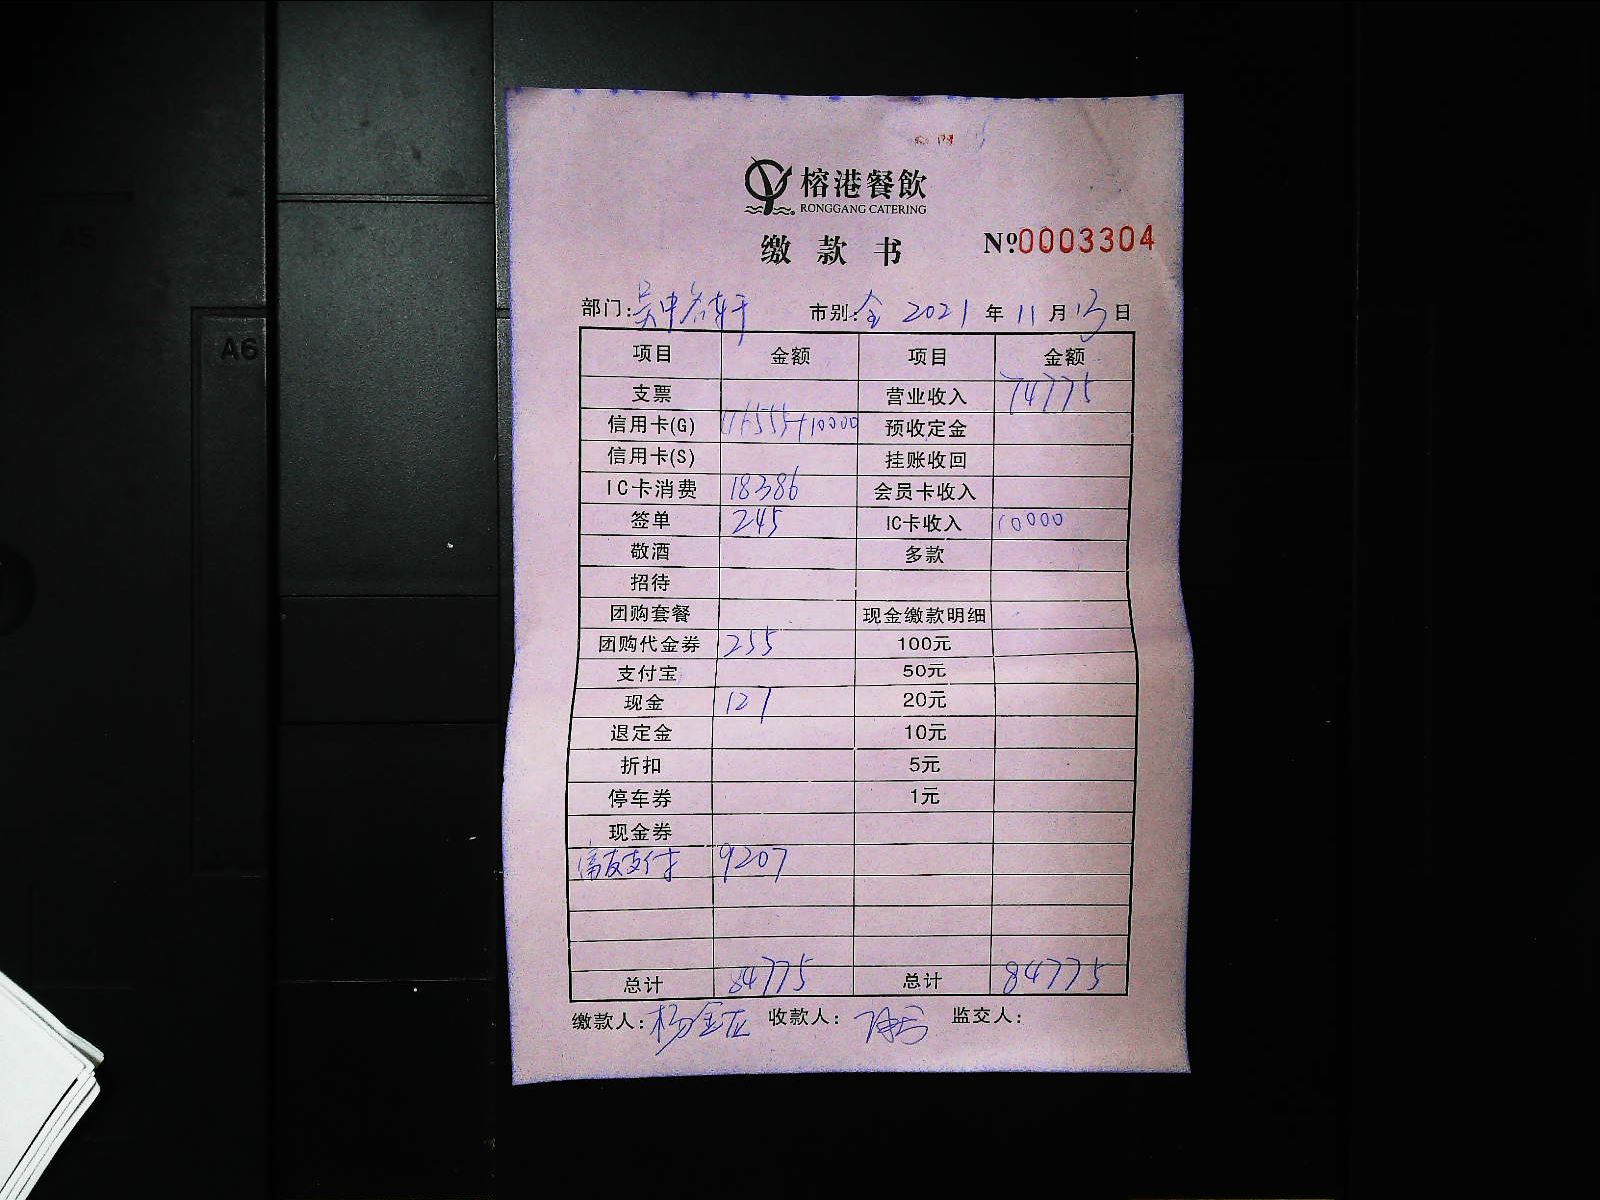 榕港餐飲
RONGGANG CATERING
缴款书 Nº0003304
部门:吴中名轩 市别:全 2021年11月13日
项目 金额 项目 金额
支票 营业收入 74775
信用卡(G) 46555+10000 预收定金
信用卡(S) 挂账收回
IC卡消费 18386 会员卡收入
签单 245 IC卡收入 10000
敬酒 多款
招待
团购套餐 现金缴款明细
团购代金券 255 100元
支付宝 50元
现金 127 20元
退定金 10元
折扣 5元
停车券 1元
现金券
富友支付 9207
总计 84775 总计 84775
缴款人: 收款人: 监交人:
A6
A5